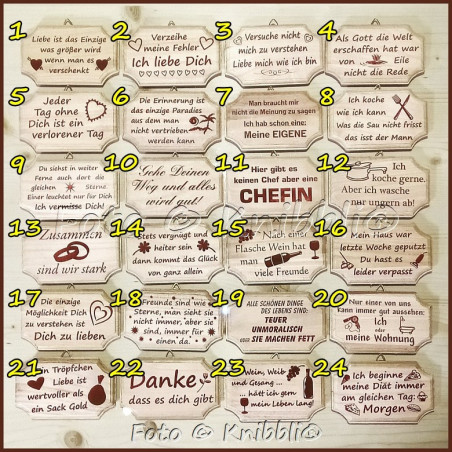 1
Liebe ist das Einzige
was größer wird
wenn man es
verschenkt
2
Verzeihe
meine Fehler
Ich liebe Dich
3
Versuche nicht
mich zu verstehen
Liebe mich wie ich bin
4
Als Gott die Welt
erschaffen hat war
von Eile
nicht die Rede
5
Jeder
Tag ohne
Dich ist ein
verlorener Tag
6
Die Erinnerung ist
das einzige Paradies
aus dem man
nicht vertrieben
werden kann
7
Man braucht mir
nicht die Meinung zu sagen
Ich hab schon eine:
Meine EIGENE
8
Ich koche
wie ich kann
Was die Sau nicht frisst
das isst der Mann
9
Du siehst in weiter
Ferne auch dort die
gleichen Sterne
Einer leuchtet nur für Dich
Ich vermisse Dich!
10
Gehe Deinen
Weg und alles
wird gut!
11
Hier gibt es
keinen Chef aber eine
CHEFIN
12
Ich
koche gerne.
Aber ich wasche
nur ungern ab!
Foto © Knibbli©
13
Zusammen
sind wir stark
14
Stets vergnügt und
heiter sein
dann kommt das Glück
von ganz allein
15
Nach einer
Flasche Wein hat
man
viele Freunde
16
Mein Haus war
letzte Woche geputzt
Du hast es
leider verpasst
17
Die einzige
Möglichkeit Dich
zu verstehen ist
Dich zu lieben
18
Freunde sind wie
Sterne, man sieht sie
nicht immer, aber sie
sind, immer für
einen da.
19
ALLE SCHÖNEN DINGE
DES LEBENS SIND:
TEUER
UNMORALISCH
oder SIE MACHEN FETT
20
Nur einer von uns
kann immer gut aussehen:
Ich
oder
meine Wohnung
21
Ein Tröpfchen
Liebe ist
wertvoller als
ein Sack Gold
22
Danke
dass es dich gibt
23
Wein, Weib
und Gesang ...
... hätt ich gern
mein Leben lang!
24
Ich beginne
meine Diät immer
am gleichen Tag:
Morgen
Foto © Knibbli©